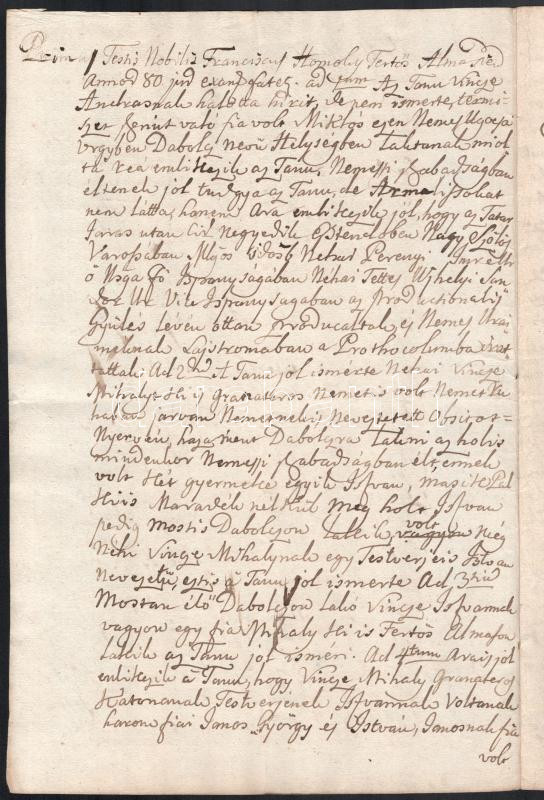 Primus Testis Nobilis Franciscus Homoky Fertös Almas
Annor 80 jur exam fatet. ad 1mum Az Tanu Vincze
Andrasnak hallotta hirit, de nem ismerte, termi-
szet szerint való fia volt Miklós ezen Nemes Ugocsa
Vrgyben Dabolcz nevü Helységben laktanak miol
ta reá emlitkezik az Tanu, Nemessi szabadságban
éltenek jól tudgya az Tanu, de Armalissokat
nem látta, hanem Ara emlitkezik jól, hogy az Tatár
Járás után Cir. negyedik esztendőben Nagy Szőlős
Városában Mlgos Udősb Nehai Perenyi Imre Ur
ő Nsga Fő Ispanyságában Néhai Tettes Ujhelyi San-
dor Ur Vice Ispanyságában az Productionalis
Gyülés lévén ottan producaltak, és Nemes Urai-
méknak Lajstromában a Prothocolumba irat-
tattak: Ad 2dum A Tanu jól ismerte Nehai Vincze
Mihalyt ki is granateros Nemet is volt Nemet Ru-
haban járván Nemetnek is Neveztetett Obsitot
Nyervén, haza ment Dabolczra lakni az holis
mindenkor Nemessi szabadságban élt, ennek
volt két gyermeke egyik Istvan, masik Pal
ki is Maradék nélkül meg holt Istvan
pedig mostis Dabolczon lakik, volt vagyon még
Néhi Vincze Mihalynak egy Testvérje is Istvan
Nevezetü, eztis a Tanu jól ismerte Ad 3tium
Mostan élö Dabolczon lakó Vincze Istvannak
vagyon egy fia Mihaly ki is Fertös Almason
lakik az Tanu jól ismeri. Ad 4tum Arais jól
emlitkezik a Tanu, hogy Vincze Mihaly Granateros
Katonanak Testverjenek Istvannak Voltanak
harom fiai Janos, György és István, Janosnak fia
volt